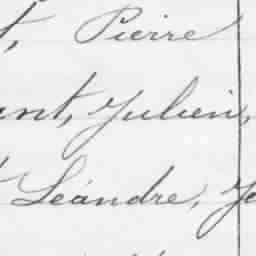 t, Pierre
ant, Julien,
Léandre, J